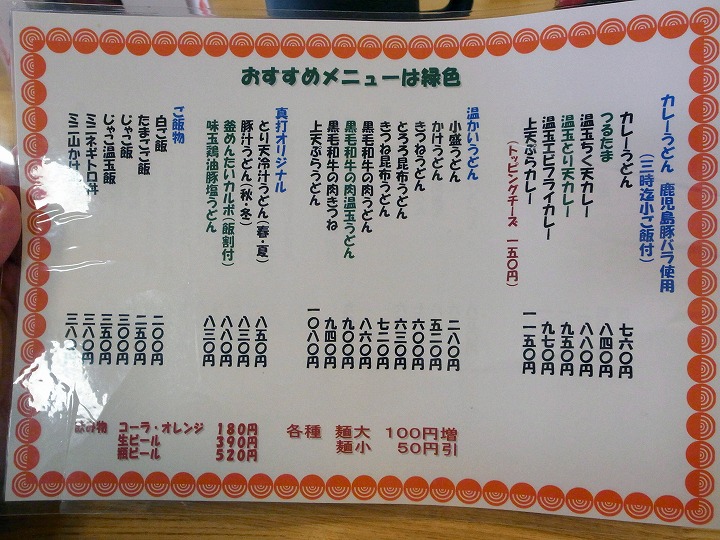 おすすめメニューは緑色
カレーうどん 鹿児島豚バラ使用
(三時迄小ご飯付)
カレーうどん 七六〇円
つるたま 八四〇円
温玉ちく天カレー 八八〇円
温玉とり天カレー 九五〇円
温玉エビフライカレー 九七〇円
上天ぷらカレー 一一五〇円
(トッピングチーズ 一五〇円)
温かいうどん
小盛うどん 二八〇円
かけうどん 五二〇円
きつねうどん 六〇〇円
とろろ昆布うどん 六三〇円
きつね昆布うどん 七二〇円
黒毛和牛の肉うどん 八六〇円
黒毛和牛の肉温玉うどん 九〇〇円
黒毛和牛の肉きつね 九四〇円
上天ぷらうどん 一〇八〇円
真打オリジナル
とり天冷汁うどん(春・夏) 八五〇円
豚汁うどん(秋・冬) 八三〇円
釜めんたいカルボ(飯割付) 八八〇円
味玉鶏油豚塩うどん 八三〇円
ご飯物
白ご飯 二〇〇円
たまごご飯 二五〇円
じゃこ飯 三〇〇円
じゃこ温玉飯 三五〇円
ミニネギトロ丼 三八〇円
ミニ山かけ 三八〇円
飲み物 コーラ・オレンジ 180円
生ビール 390円
瓶ビール 520円
各種 麺大 100円増
麺小 50円引